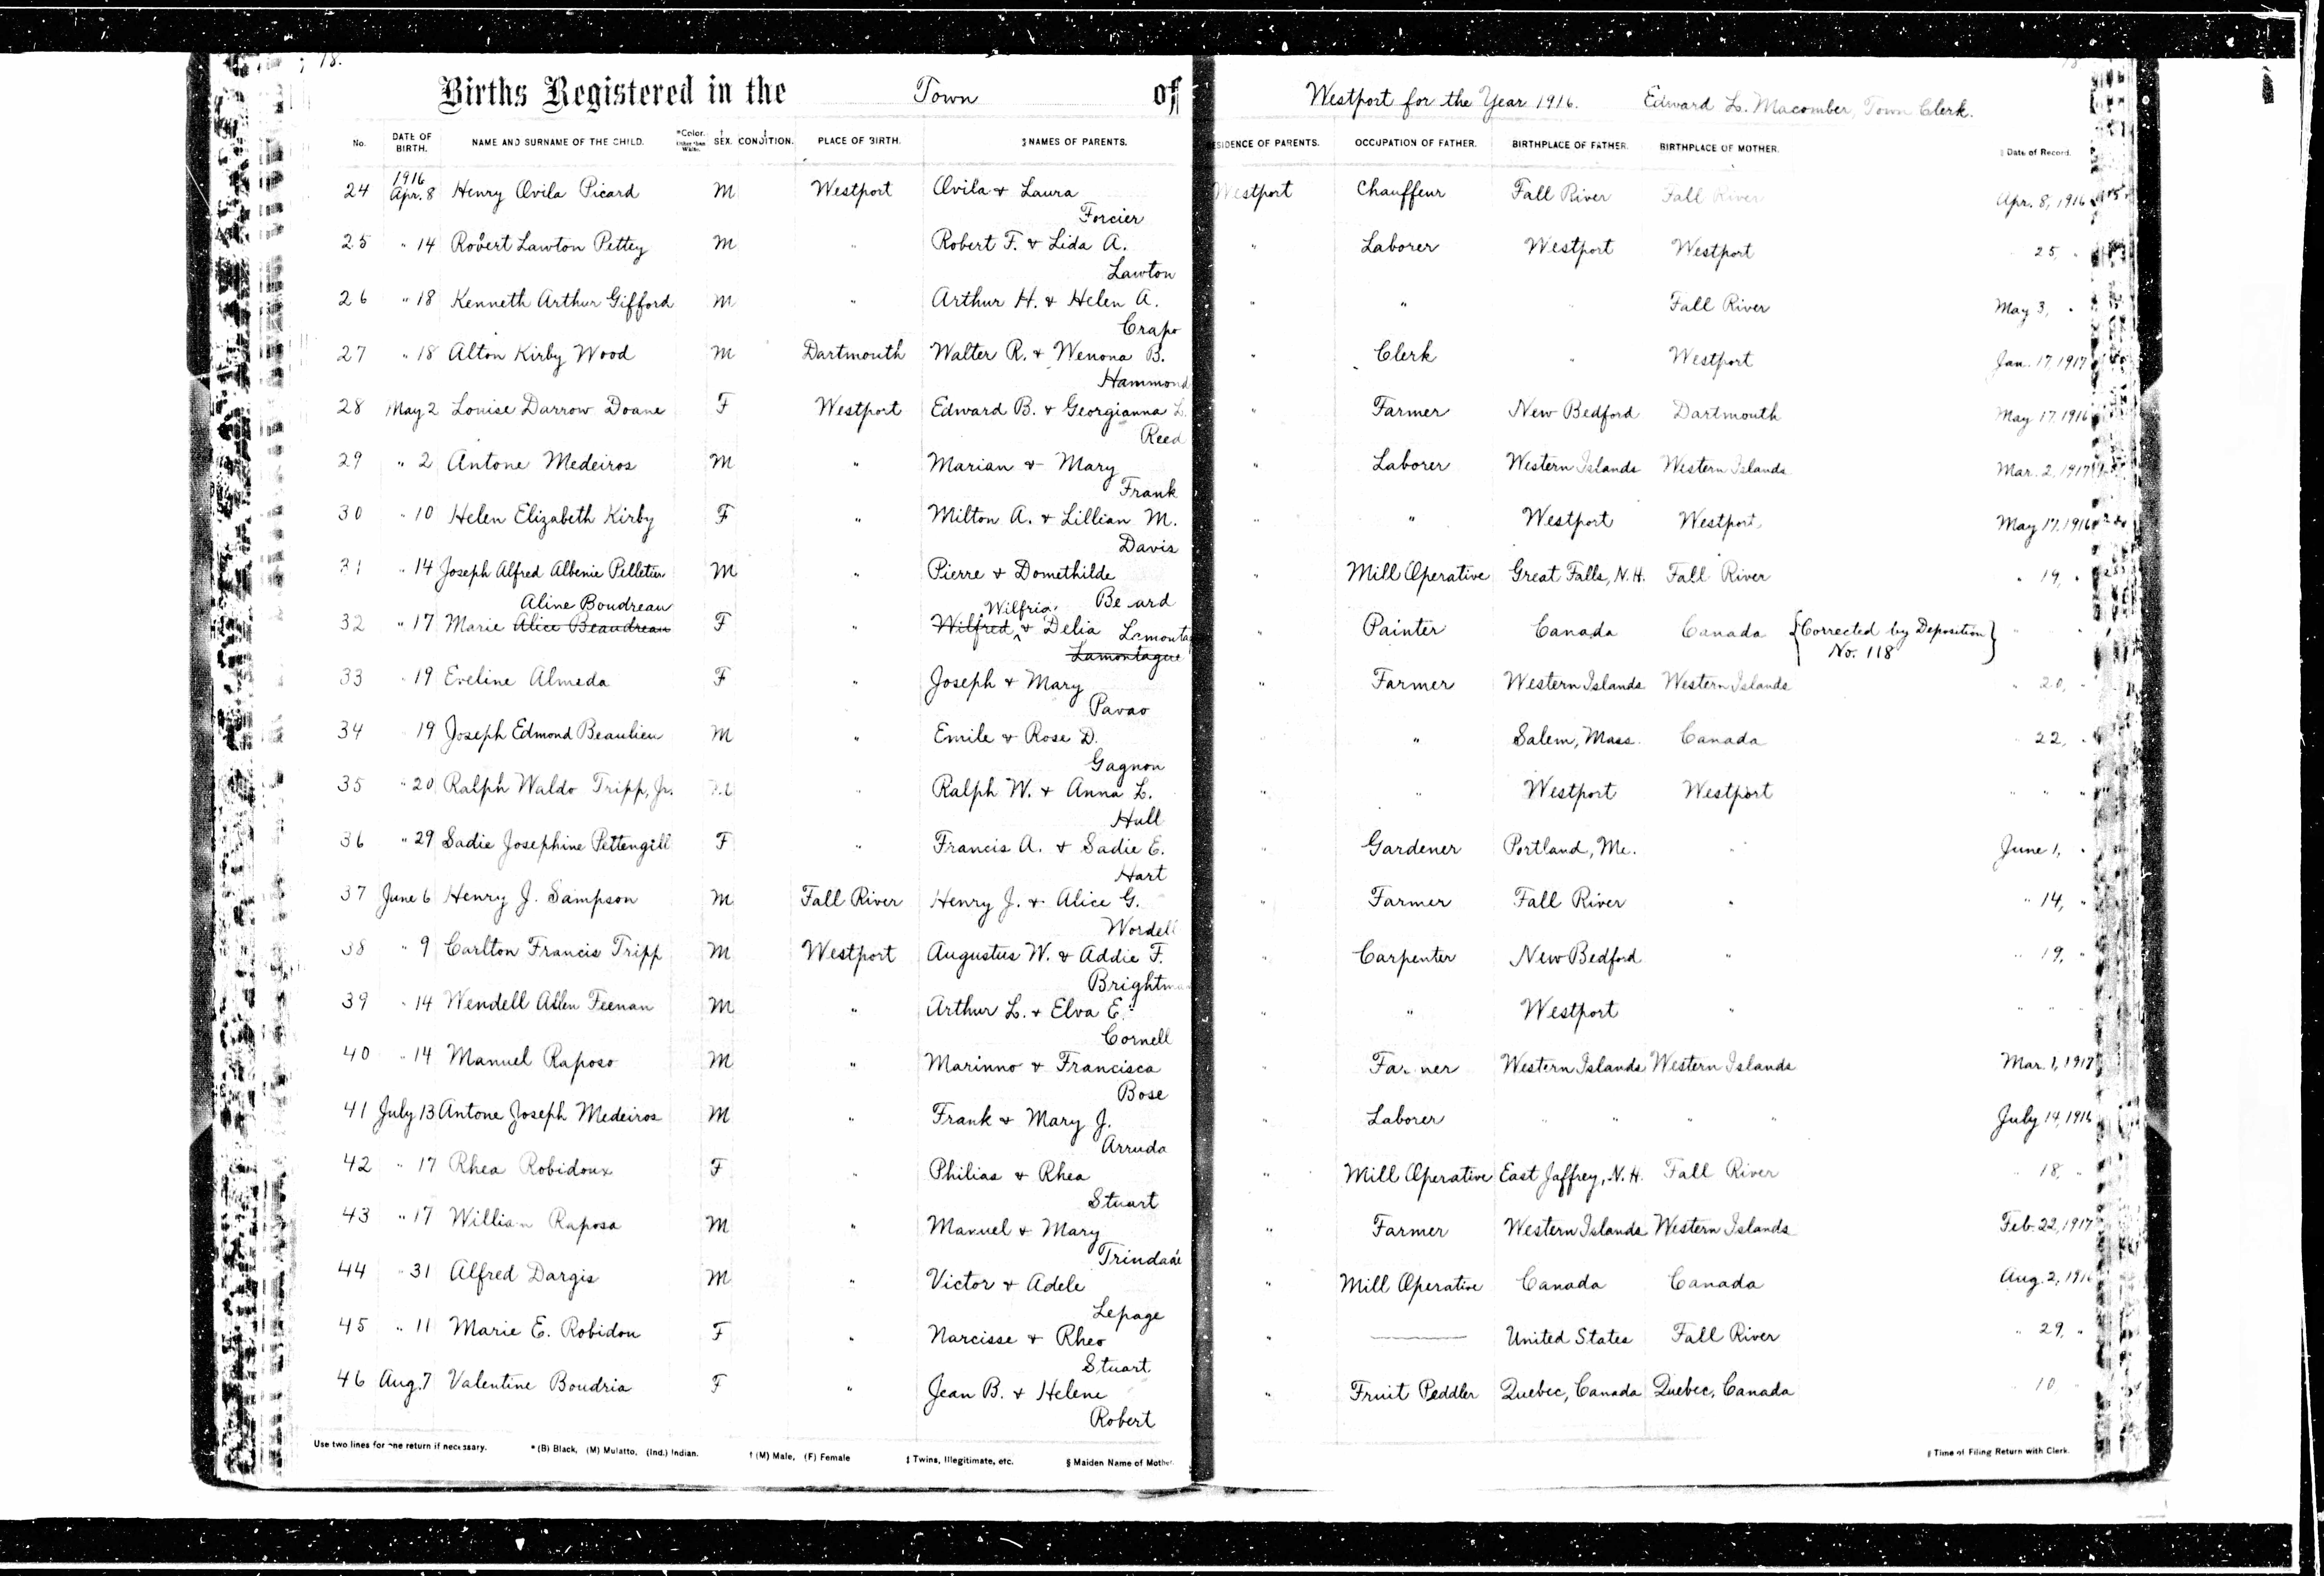 18.
Births Registered in the Town of Westport for the Year 1916. Edward L. Macomber, Town Clerk.
No. DATE OF BIRTH. NAME AND SURNAME OF THE CHILD. *Color. Other than White. † SEX. ‡ CONDITION. PLACE OF BIRTH. § NAMES OF PARENTS. RESIDENCE OF PARENTS. OCCUPATION OF FATHER. BIRTHPLACE OF FATHER. BIRTHPLACE OF MOTHER. ‖ Date of Record.
1916
24 Apr. 8 Henry Ovila Picard M Westport Ovila & Laura Westport Chauffeur Fall River Fall River Apr. 8, 1916
Forcier
25 " 14 Robert Lawton Pettey M " Robert F. & Lida A. " Laborer Westport Westport 25, "
Lawton
26 " 18 Kenneth Arthur Gifford M " Arthur H. & Helen A. " " " Fall River May 3, "
Crapo
27 " 18 Alton Kirby Wood M Dartmouth Walter R. & Wenona B. " Clerk " Westport Jan. 17, 1917
Hammond
28 May 2 Louise Darrow Doane F Westport Edward B. & Georgianna L. " Farmer New Bedford Dartmouth May 17, 1916
Reed
29 " 2 Antone Medeiros M " Marian & Mary " Laborer Western Islands Western Islands Mar. 2, 1917
Frank
30 " 10 Helen Elizabeth Kirby F " Milton A. & Lillian M. " " Westport Westport May 17, 1916
Davis
31 " 14 Joseph Alfred Albenie Pelletier M " Pierre & Domethilde " Mill Operative Great Falls, N.H. Fall River " 19, "
Aline Boudreau Wilfria
32 " 17 Marie Alice Beaudreau F " Wilfred & Delia Lamontag " Painter Canada Canada {Corrected by Deposition No. 118} "
Lamontague
33 " 19 Eveline Almeda F " Joseph & Mary " Farmer Western Islands Western Islands " 20, "
Pavao
34 19 Joseph Edmond Beaulieu M " Emile & Rose D. " " Salem, Mass. Canada " 22, "
Gagnon
35 " 20 Ralph Waldo Tripp, Jr. " Ralph W. & Anna L. " " Westport Westport " " "
Hull
36 " 29 Sadie Josephine Pettengill F " Francis A. & Sadie E. " Gardener Portland, Me. " June 1, "
Hart
37 June 6 Henry J. Sampson M Fall River Henry J. & Alice G. " Farmer Fall River " " 14, "
Wordell
38 " 9 Carlton Francis Tripp M Westport Augustus W. & Addie F. " Carpenter New Bedford " " 19, "
Brightman
39 " 14 Wendell Allen Feenan M " Arthur L. & Elva E. " " Westport " " "
Cornell
40 " 14 Manuel Raposo M " Marinno & Francisca " Farmer Western Islands Western Islands Mar. 1, 1917
Bose
41 July 13 Antone Joseph Medeiros M " Frank & Mary J. " Laborer " " " " July 14, 1916
Arruda
42 " 17 Rhea Robidoux F " Philias & Rhea " Mill Operative East Jaffrey, N.H. Fall River " 18, "
Stuart
43 " 17 William Raposa M " Manuel & Mary " Farmer Western Islands Western Islands Feb. 22, 1917
Trindade
44 " 31 Alfred Dargis M " Victor & Adele " Mill Operative Canada Canada Aug. 2, 1916
Lepage
45 " 11 Marie E. Robidou F " Narcisse & Rhea " — United States Fall River " 29, "
Stuart
46 Aug. 7 Valentine Boudria F " Jean B. & Helene " Fruit Peddler Quebec, Canada Quebec, Canada " 10, "
Robert
Use two lines for one return if necessary. * (B) Black, (M) Mulatto, (Ind.) Indian. † (M) Male, (F) Female ‡ Twins, Illegitimate, etc. § Maiden Name of Mother. ‖ Time of Filing Return with Clerk.